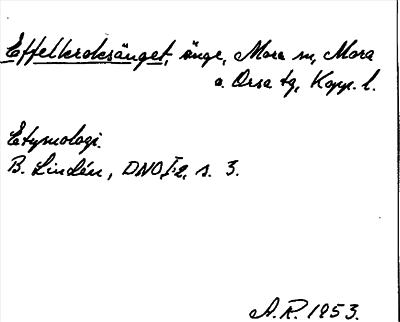 Effelkroksänget, änge, Mora sn, Mora
o. Orsa tg, Kopp. l.
Etymologi.
B. Lindén, DNO,I:2, s. 3.
A.R. 1953.